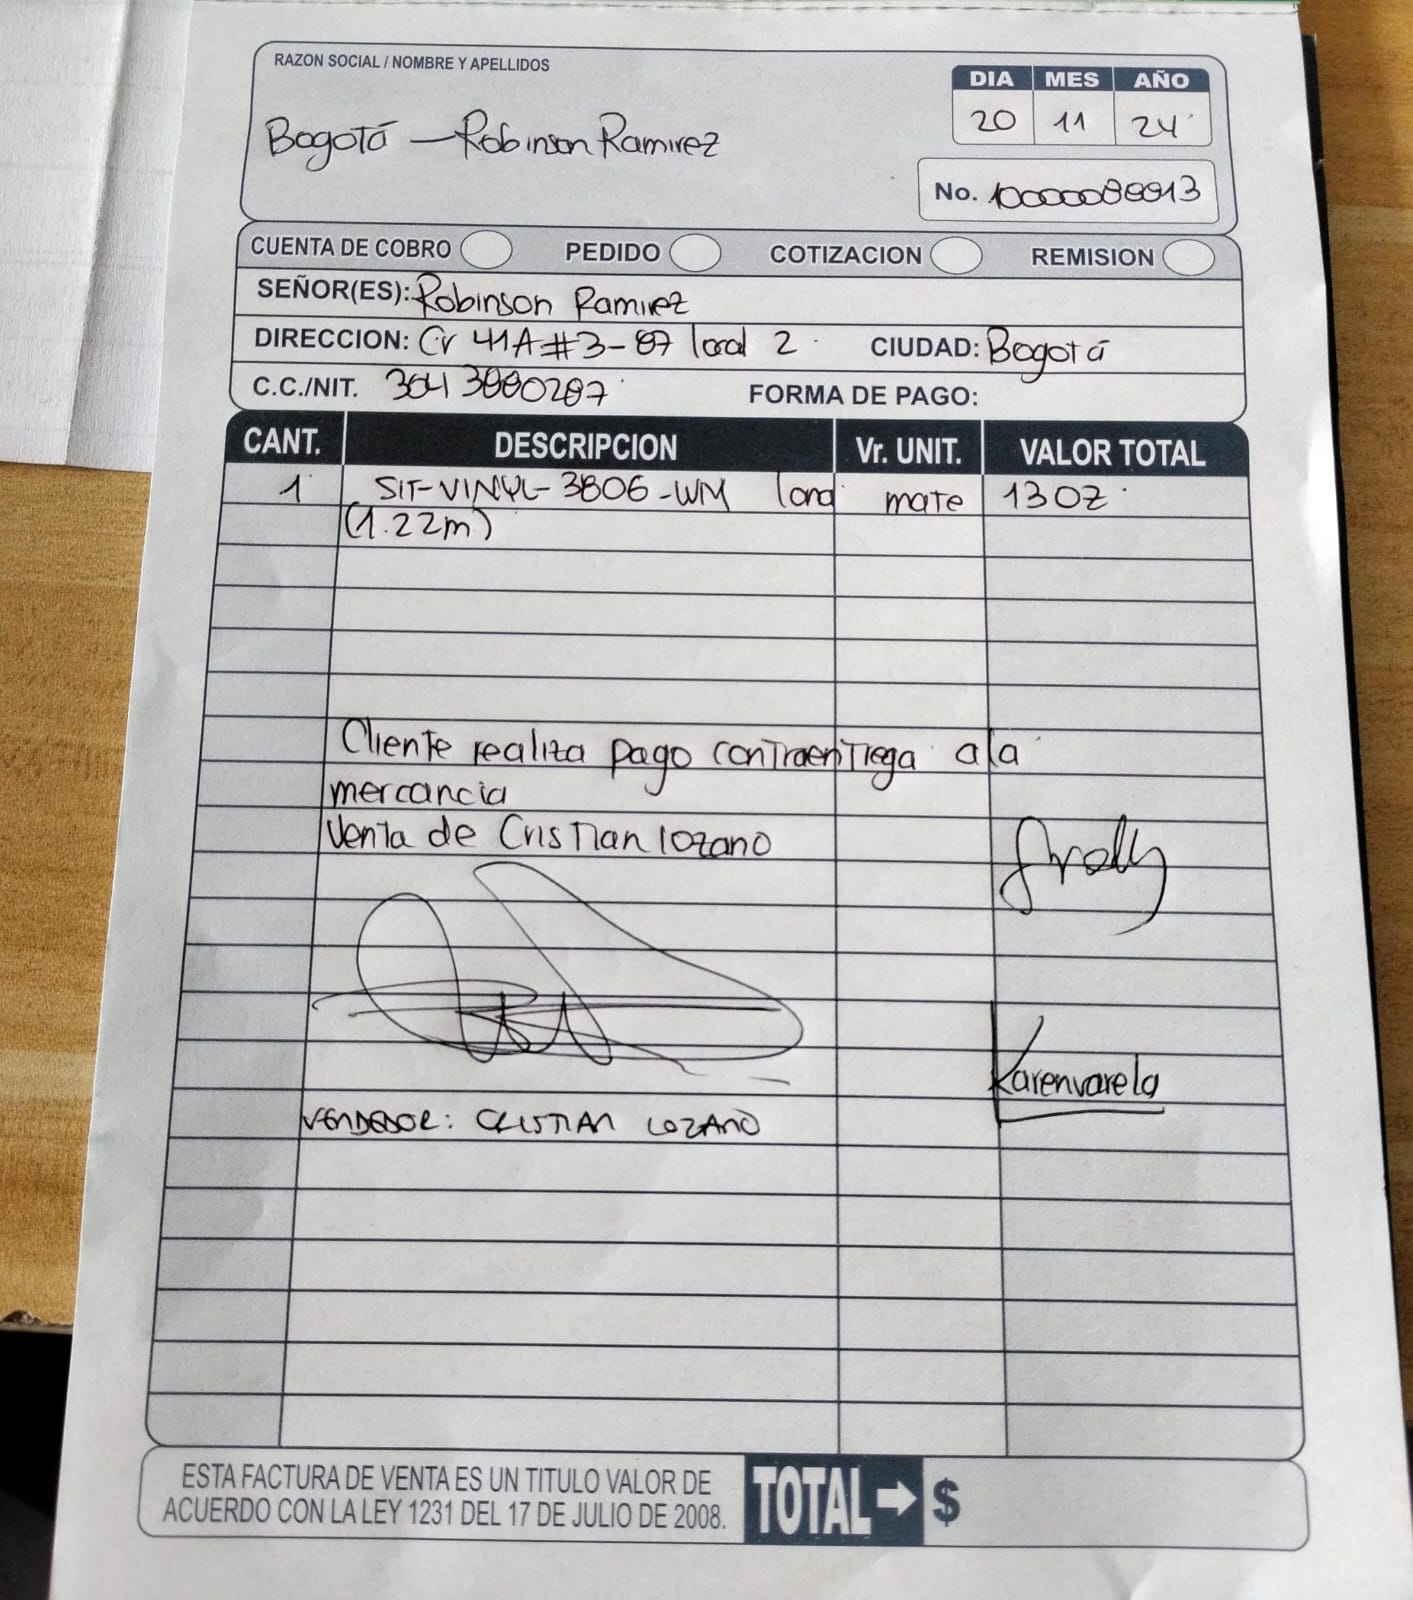 RAZON SOCIAL / NOMBRE Y APELLIDOS
DIA MES AÑO
20 11 24
Bogotá - Robinson Ramirez
No. 10000088913
CUENTA DE COBRO PEDIDO COTIZACION REMISION
SEÑOR(ES): Robinson Ramirez
DIRECCION: Cr 41A #3-87 local 2 CIUDAD: Bogotá
C.C./NIT. FORMA DE PAGO:
CANT. DESCRIPCION Vr. UNIT. VALOR TOTAL
1 SIT-VINYL-3806-WM lona mate 13OZ
(1.22m)
Cliente realiza pago contraentrega a la
mercancia
Venta de Cristian lozano
Karenvarela
VENDEDOR: CRISTIAN LOZANO
ESTA FACTURA DE VENTA ES UN TITULO VALOR DE
ACUERDO CON LA LEY 1231 DEL 17 DE JULIO DE 2008.
TOTAL → $